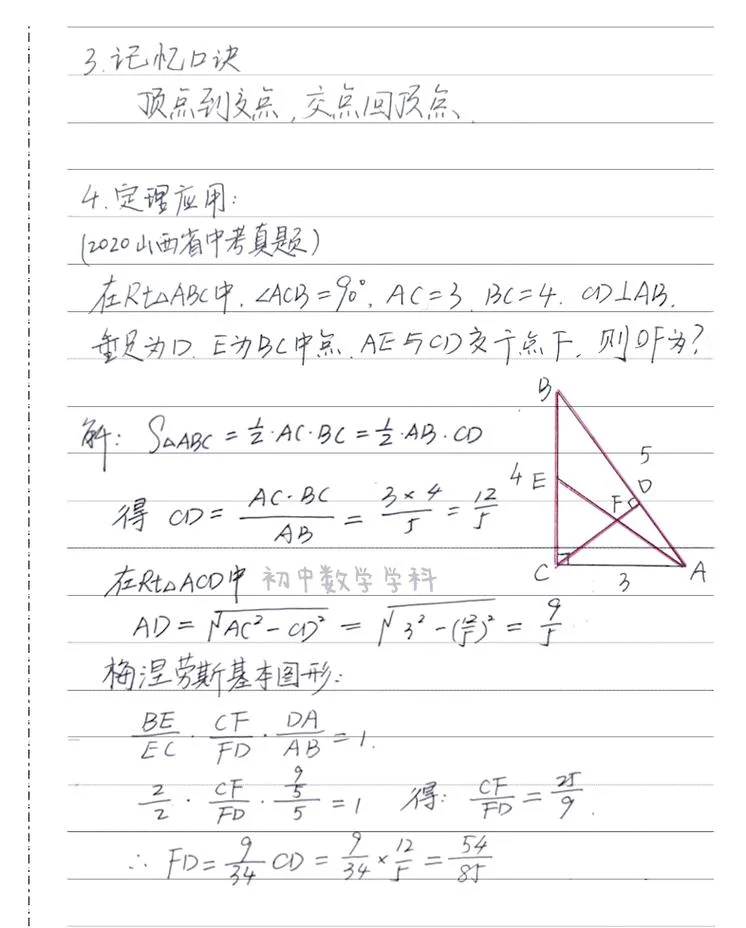 3.记忆口诀
顶点到交点,交点回顶点、
4.定理应用:
(2020山西省中考真题)
在Rt△ABC中,∠ACB=90°,AC=3,BC=4.CD⊥AB,
垂足为D.E为BC中点,AE与CD交于点F,则DF为?
解:S△ABC=½·AC·BC=½·AB·CD
得 CD=AC·BC/AB=3×4/5=12/5
在Rt△ACD中
初中数学学科
AD=√(AC²-CD²)=√(3²-(12/5)²)=9/5
梅涅劳斯基本图形:
BE/EC·CF/FD·DA/AB=1.
2/2·CF/FD·(9/5)/5=1 得:CF/FD=25/9.
∴FD=9/34CD=9/34×12/5=54/85
B
5
4 E
F D
C
3
A